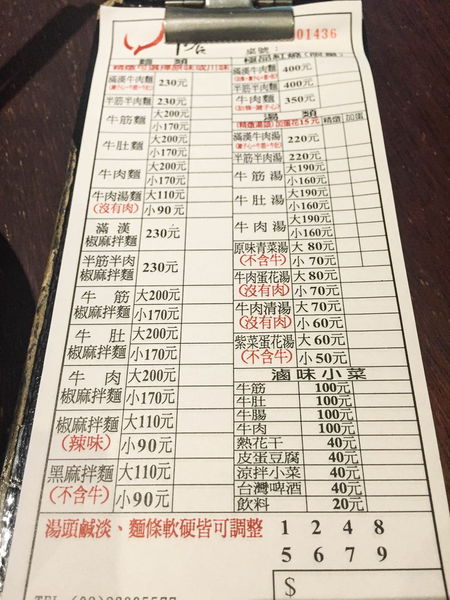 01436
桌號：
麵 類
精燉可選擇原味或川味
滿漢牛肉麵 230元
半筋半肉麵 230元
牛筋麵 大200元
小170元
牛肚麵 大200元
小170元
牛肉麵 大200元
小170元
牛肉湯麵 大110元
(沒有肉) 小 90元
滿漢
椒麻拌麵 230元
半筋半肉
椒麻拌麵 230元
牛 筋 大200元
椒麻拌麵 小170元
牛 肚 大200元
椒麻拌麵 小170元
牛 肉 大200元
椒麻拌麵 小170元
椒麻拌麵 大110元
(辣味) 小 90元
黑麻拌麵 大110元
(不含牛) 小 90元
極品紅燒
滿漢牛肉麵 400元
半筋半肉麵 400元
牛肉麵 350元
湯 類
(精燉湯頭)加蛋花15元 精燉 加蛋
滿漢牛肉湯 220元
半筋半肉湯 220元
牛筋湯 大190元
小160元
牛肚湯 大190元
小160元
牛肉湯 大190元
小160元
原味青菜湯 大 80元
(不含牛) 小 70元
牛肉蛋花湯 大 80元
(沒有肉) 小 70元
牛肉清湯 大 70元
(沒有肉) 小 60元
紫菜蛋花湯 大 60元
(不含牛) 小 50元
滷味小菜
牛筋 100元
牛肚 100元
牛腸 100元
牛肉 100元
熱花干 40元
皮蛋豆腐 40元
涼拌小菜 40元
台灣啤酒 40元
飲料 20元
湯頭鹹淡、麵條軟硬皆可調整
1 2 4 8
5 6 7 9
$